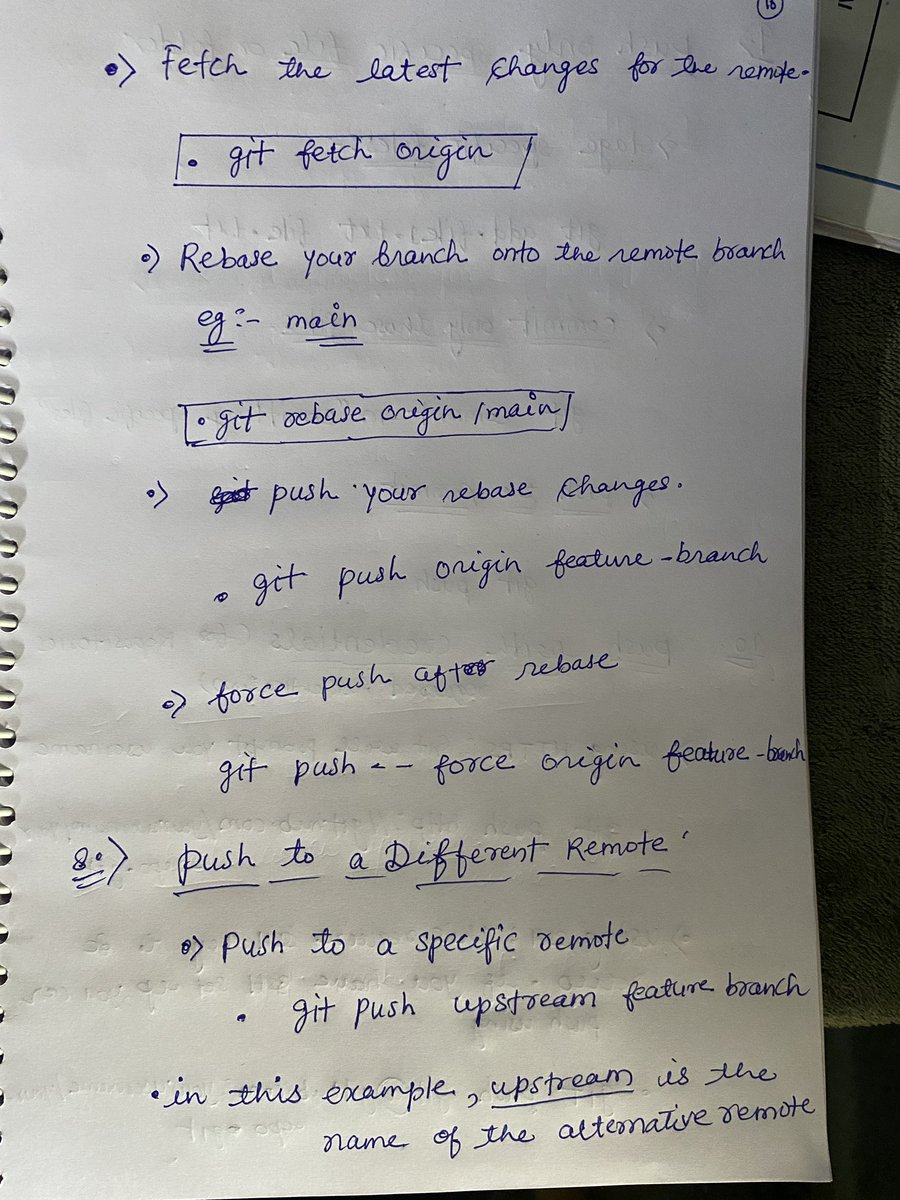 18
•) Fetch the latest changes for the remote.
• git fetch origin
•) Rebase your branch onto the remote branch
eg:- main
• git rebase origin/main
•) push your rebase changes.
• git push origin feature-branch
•) force push after rebase
git push -- force origin feature-branch
8.) Push to a Different Remote
•) Push to a specific remote
• git push upstream feature branch
• in this example, upstream is the
name of the alternative remote